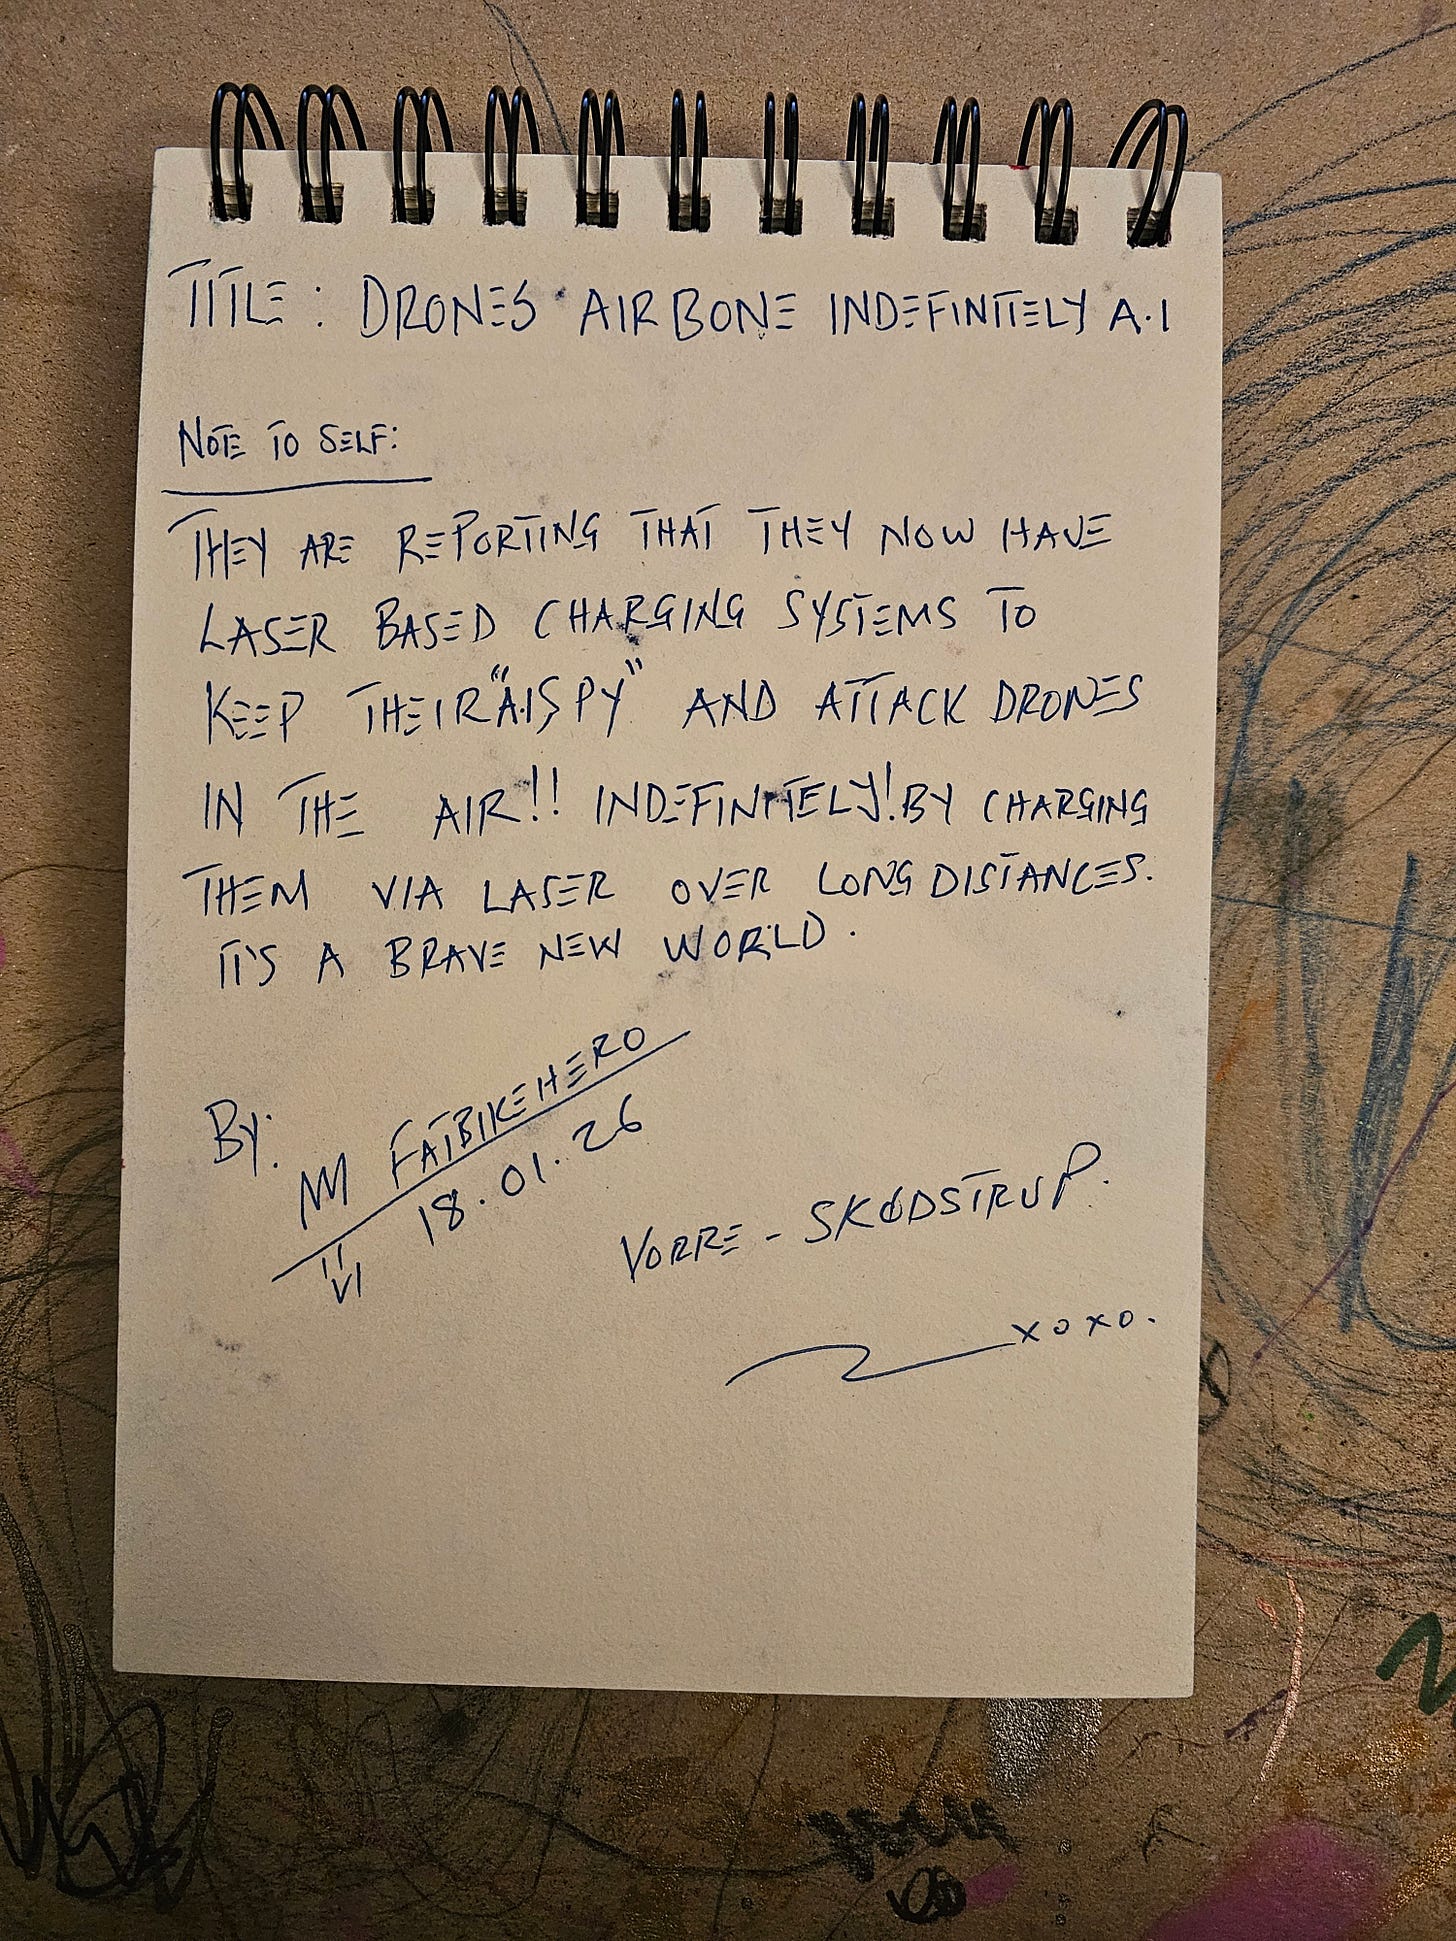 TITLE: DRONES AIRBONE INDEFINITELY A.I
NOTE TO SELF:
THEY ARE REPORTING THAT THEY NOW HAVE
LASER BASED CHARGING SYSTEMS TO
KEEP THEIR "A.I SPY" AND ATTACK DRONES
IN THE AIR!! INDEFINITELY! BY CHARGING
THEM VIA LASER OVER LONG DISTANCES.
IT'S A BRAVE NEW WORLD.
By: FATBIKEHERO
18.01.26
VORRE - SKØDSTRUP.
xoxo.